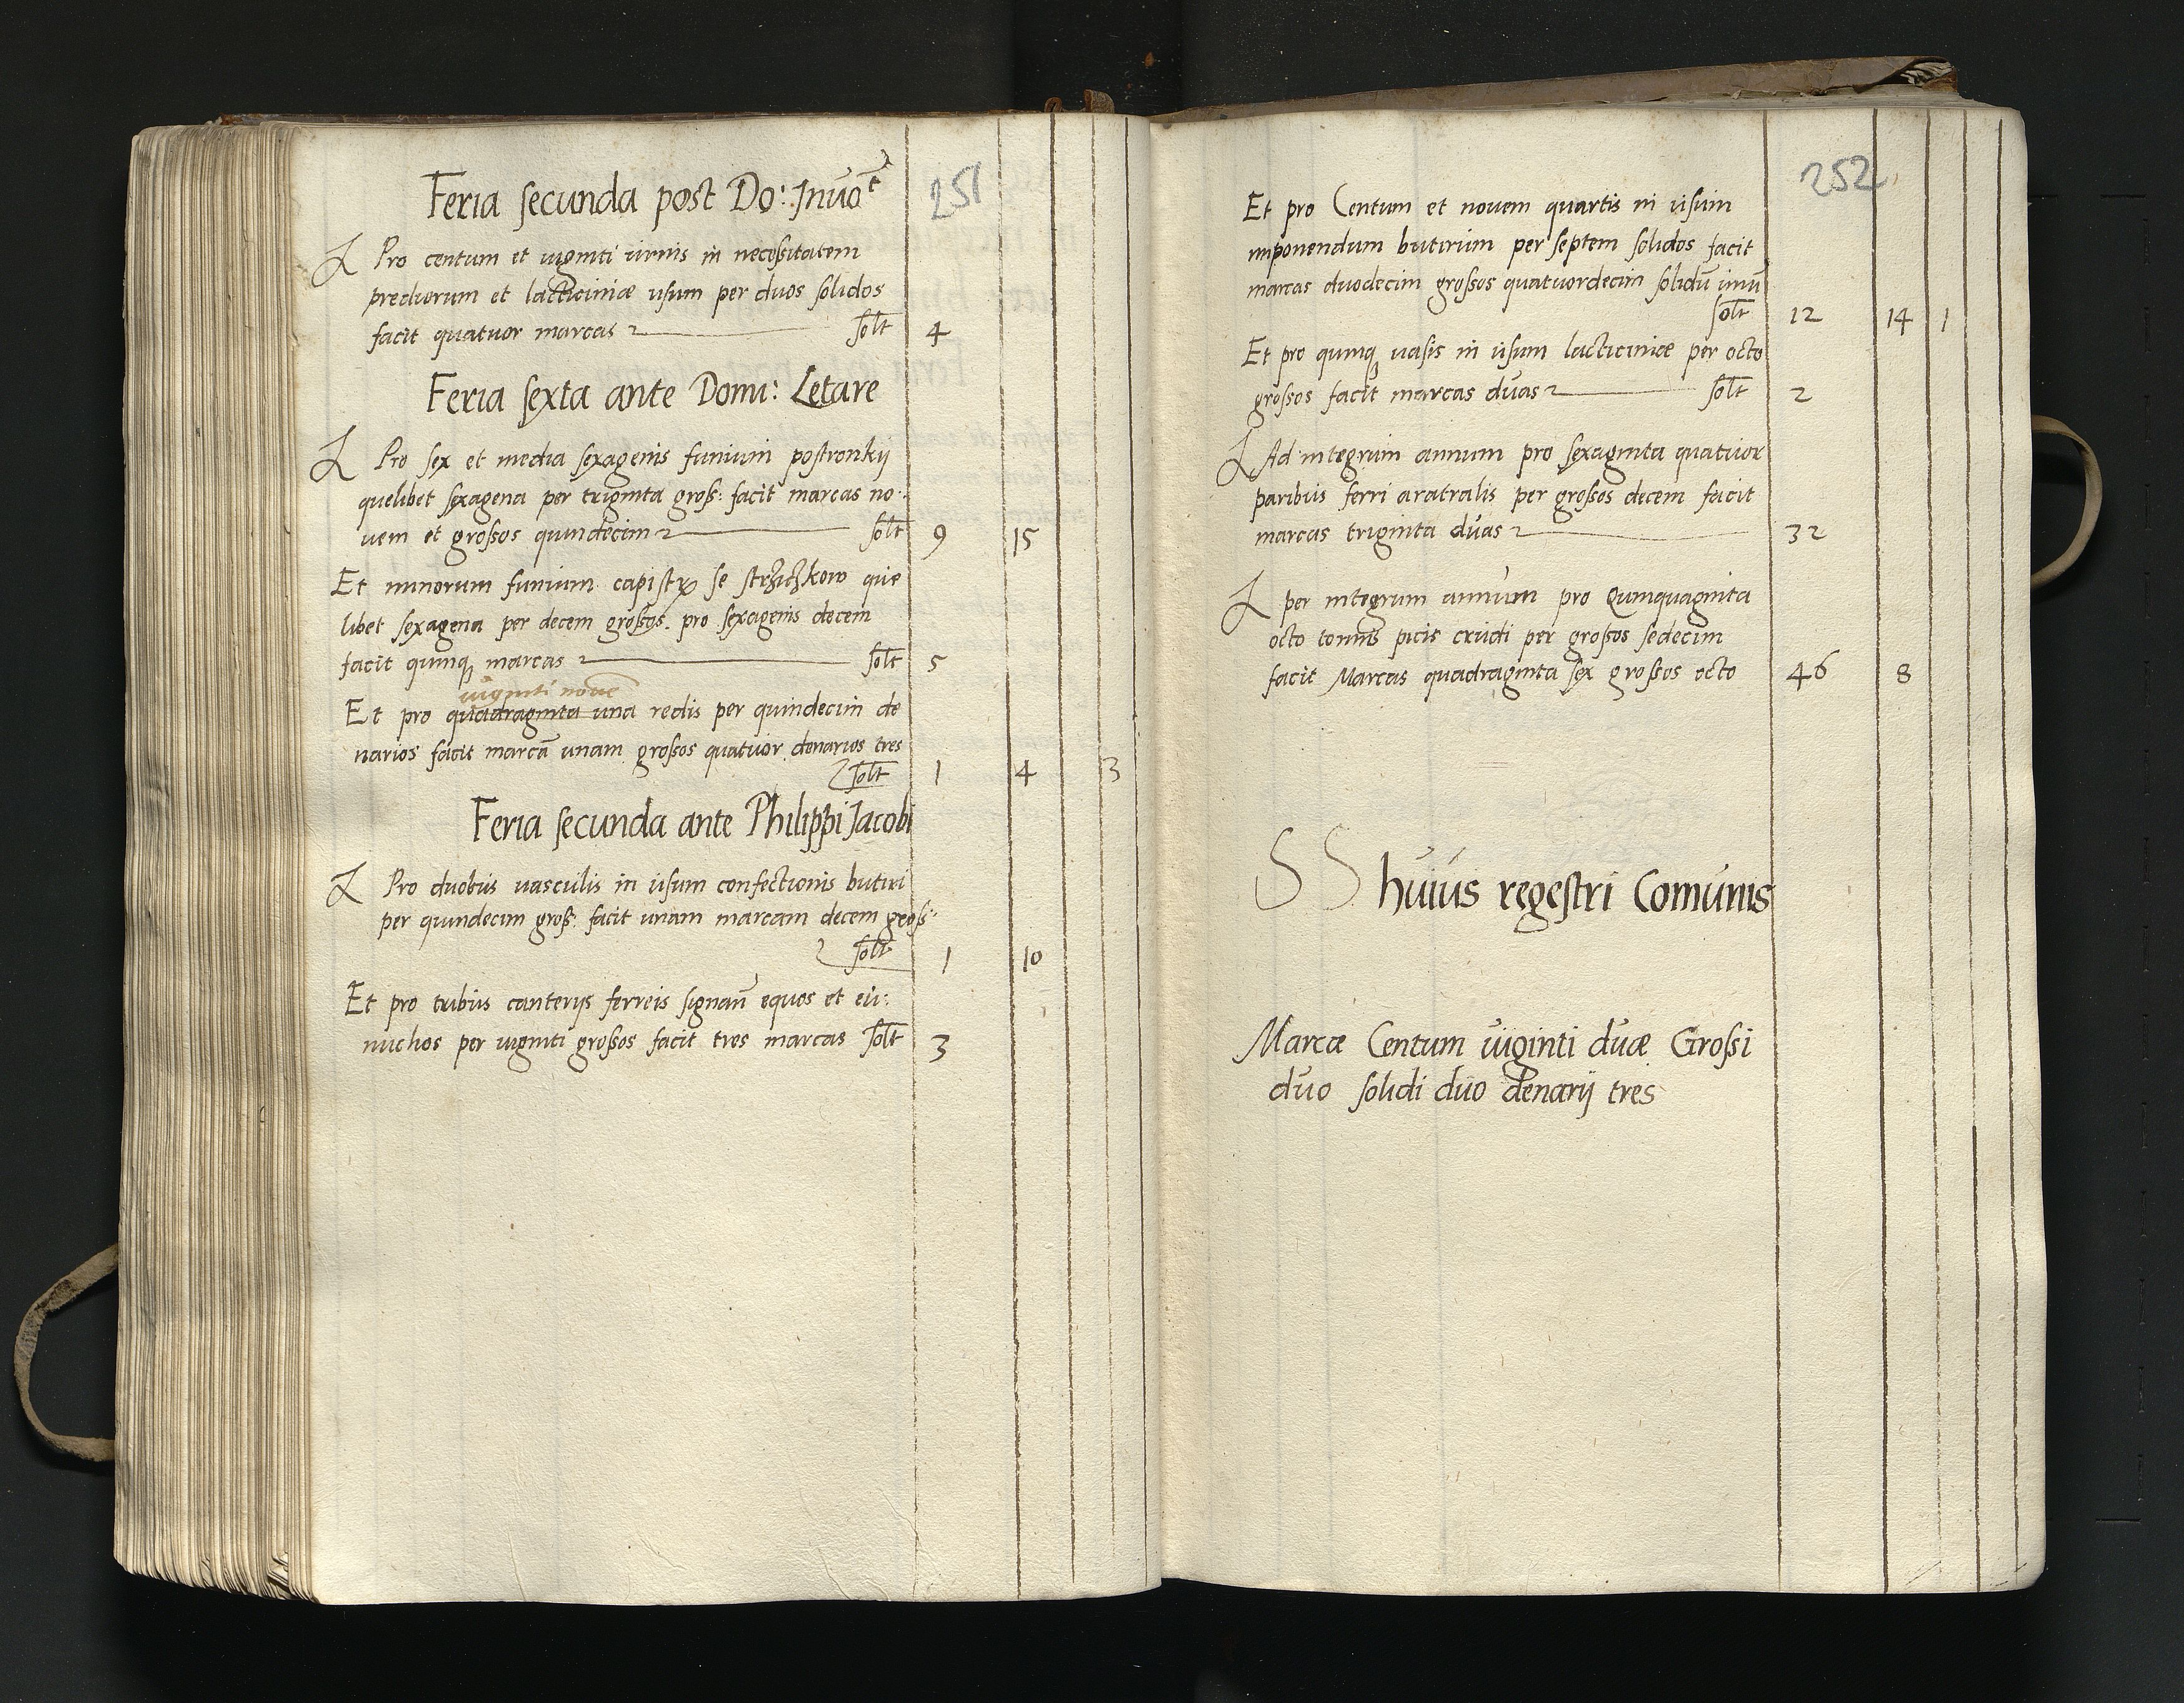 251
Feria secunda post Do: Inuo^t
Pro centum et uiginti urnis in necessitatem
prediorum et lacticiniæ usum per duos solidos
facit quatuor marcas solt 4
Feria sexta ante Domi: Letare
Pro sex et media sexagenis funium postronkij
quelibet sexagena per triginta gross: facit marcas no:
uem et grossos quindecim solt 9 15
Et minorum funium capistr se strzichkow que
libet sexagena per decem grossos pro sexagenis decem
facit quinq marcas solt 5
uiginti noue
Et pro quadraginta una redis per quindecim de
narios facit marcā unam grossos quatuor denarios tres
solt 1 4 3
Feria secunda ante Philippi Jacobi
Pro duobus uasculis in usum confectionis butiri
per quindecim gross: facit unam marcam decem gross:
solt 1 10
Et pro tribus canterijs ferreis signan̄ equos et eu:
nuchos per uiginti grossos facit tres marcas solt 3
252
Et pro Centum et nouem quartis in usum
imponendum butirum per septem solidos facit
marcas duodecim grossos quatuordecim solidū unū
solt 12 14 1
Et pro quinq uasis in usum lacticiniæ per octo
grossos facit marcas duas solt 2
Ad integrum annum pro sexaginta quatuor
paribus ferri aratralis per grossos decem facit
marcas triginta duas 32
per integrum annum pro Quinquaginta
octo tonnis picis crudi per grossos sedecim
facit Marcas quadraginta sex grossos octo 46 8
SS huius regestri Comunis
Marcæ Centum uiginti duæ Grossi
duo solidi duo denarij tres